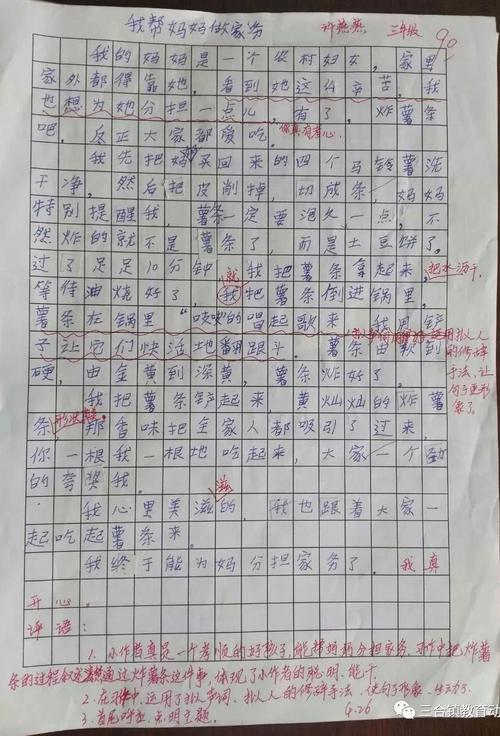 我帮妈妈做家务
许燕燕 三年级 90
我的妈妈是一个农村妇女，家里
家外都得靠她。看到她这么辛苦，我
也想为她分担一点儿，有了，炸薯条
吧。反正大家都爱吃。你真有孝心。
我先把妈买回来的四个马铃薯洗
干净，然后把皮削掉，切成条，妈妈
特别提醒我，薯条一定要泡久一点，不
然炸的就不是薯条了，而是土豆饼了。
过了足足10分钟，我把薯条拿起来，把水沥干，
等待油烧好了，就我把薯条倒进锅里，
薯条在锅里“吱吱”的唱起歌来，我用铲
子让它们快活地翻跟斗。薯条由软到
运用拟人的修辞手法，让句子更形象了。
硬，由金黄到深黄，薯条炸好了。
我把薯条铲起来，黄灿灿的炸薯
条，那香味把全家人都吸引了过来，
你一根我一根地吃起来，大家一个劲
的夸奖我。
滋
我心里美滋的，我也跟着大家一
起吃起薯条来。
我终于能为妈分担家务了。我真
开心。
评语：
1. 小作者真是一个孝顺的好孩子，能帮妈妈分担家务，习作中把炸薯
条的过程叙述清楚，通过炸薯条这件事，体现了小作者的聪明、能干。
2. 在习作中，运用了拟声词、拟人的修辞手法，使句子形象、生动了。
3. 首尾呼应，点明主题。
6.26
三合镇教育动